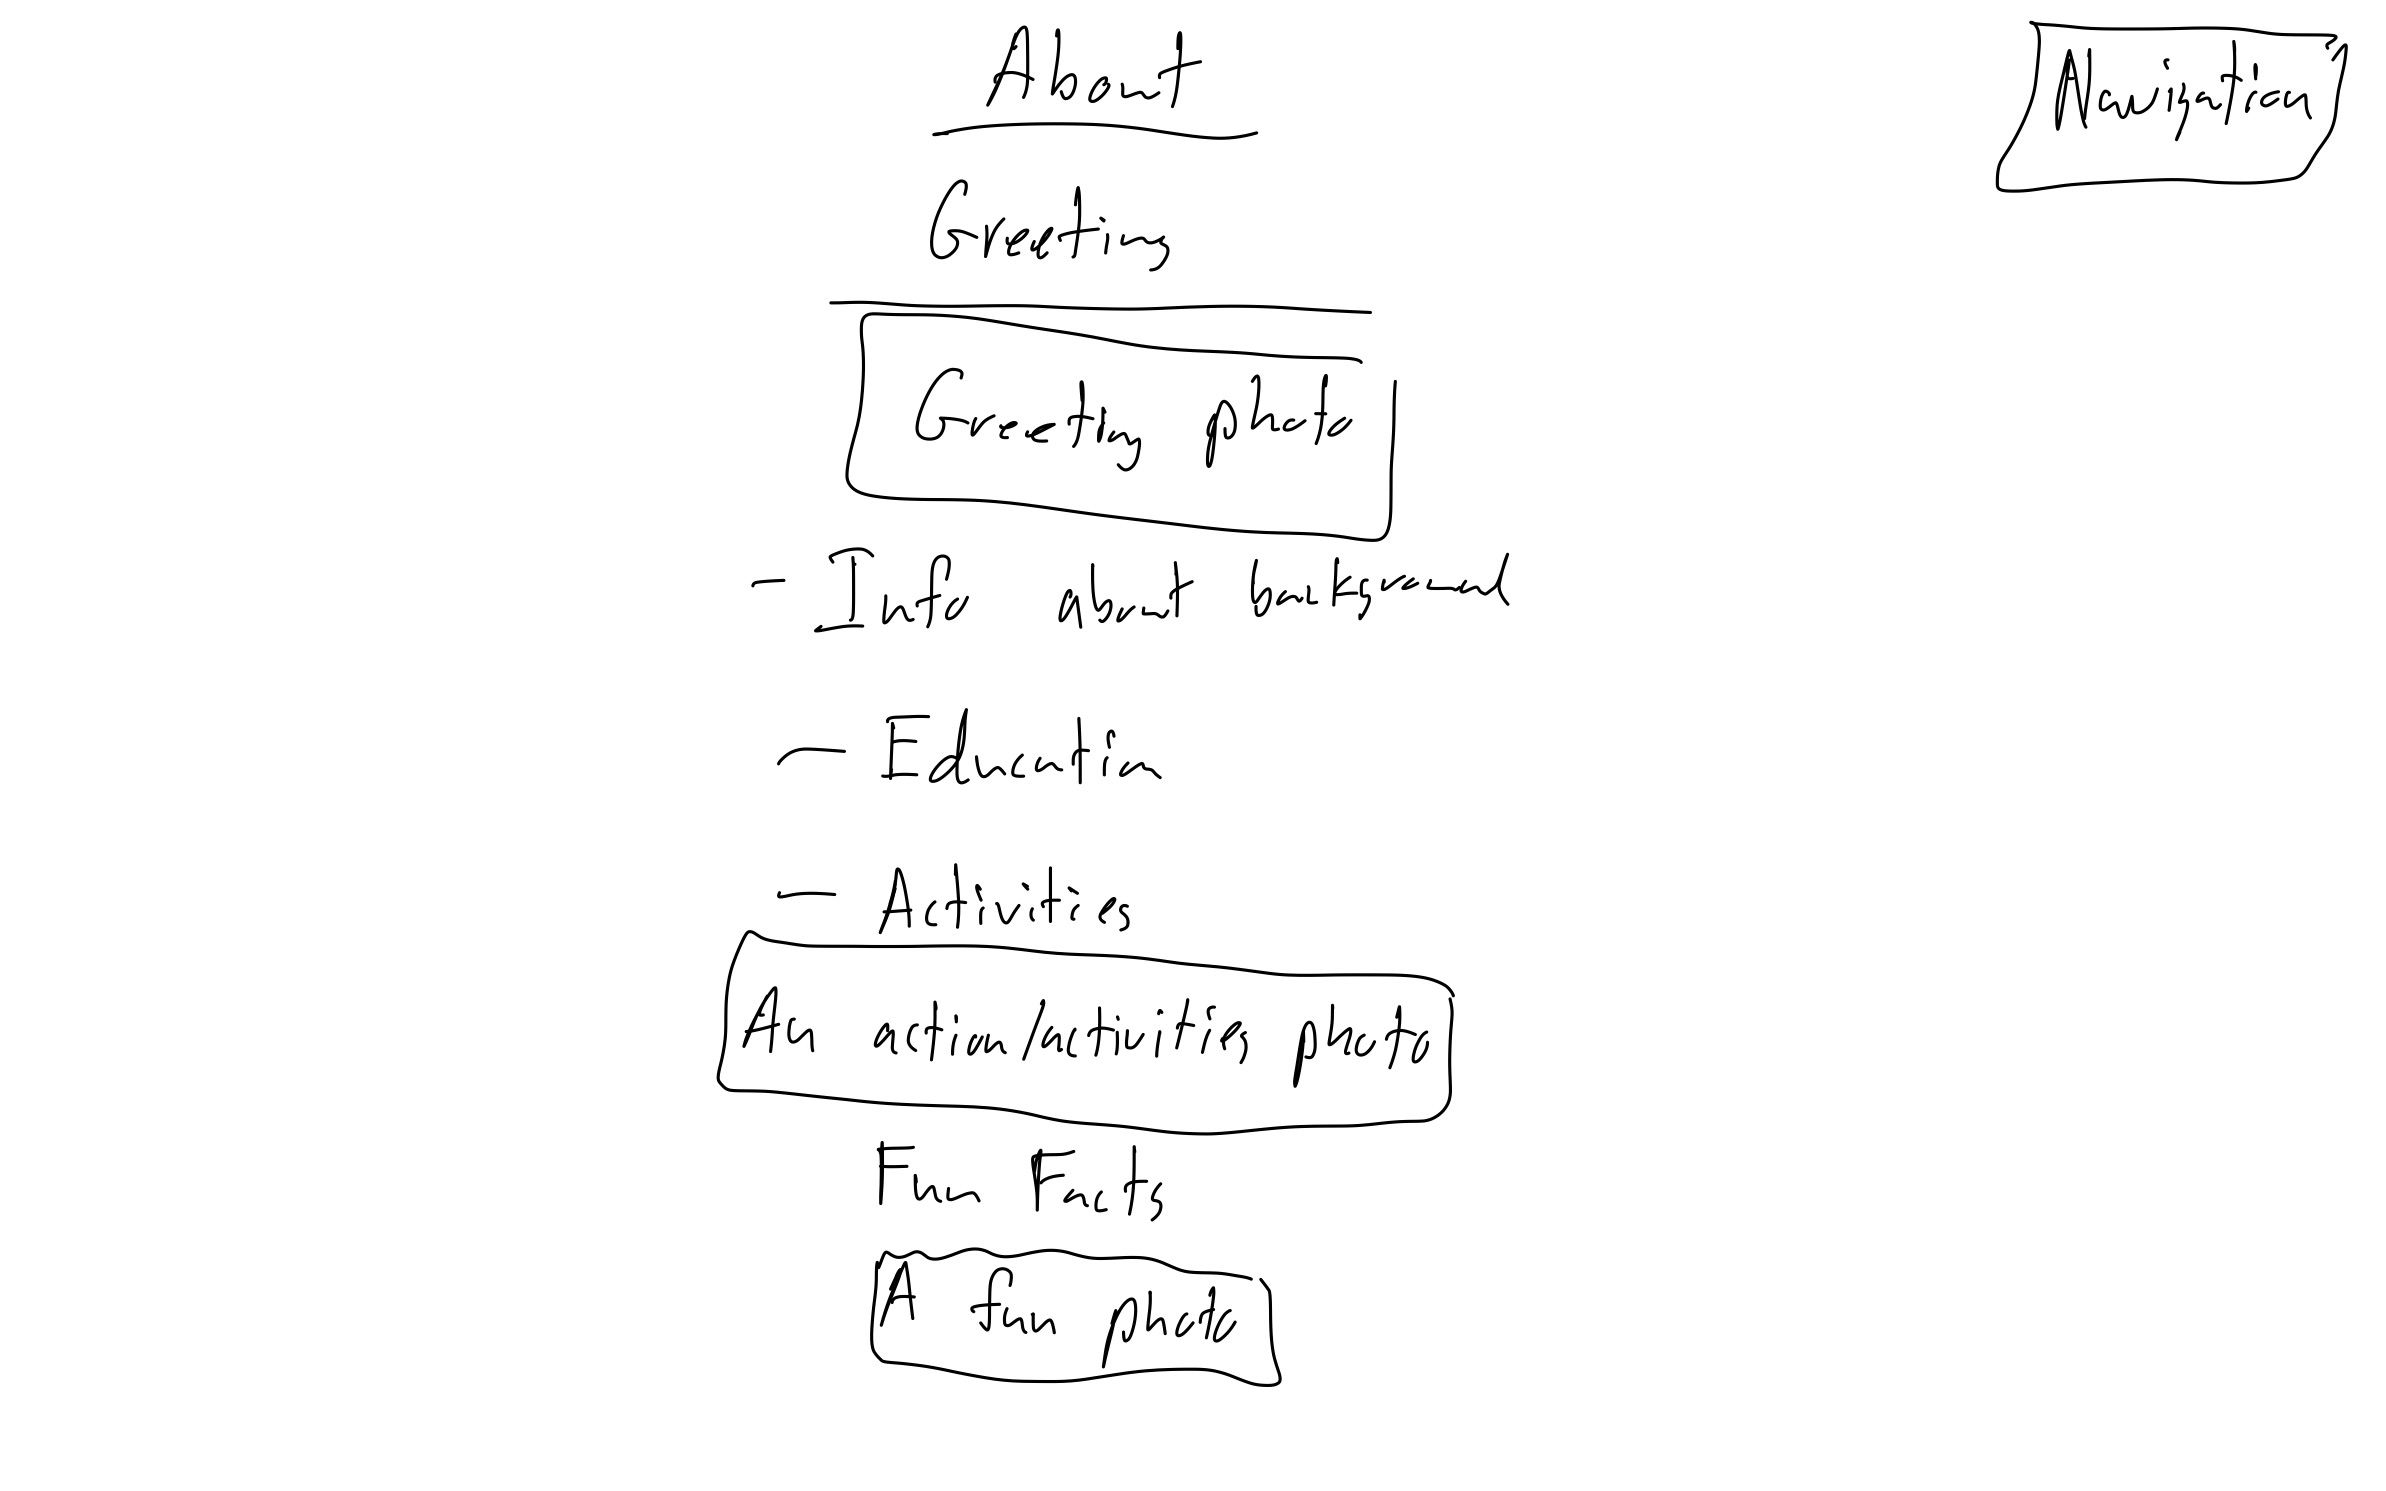 About
Navigation
Greeting
Greeting photo
- Info about background
- Education
- Activities
An action/activities photo
Fun Facts
A fun photo